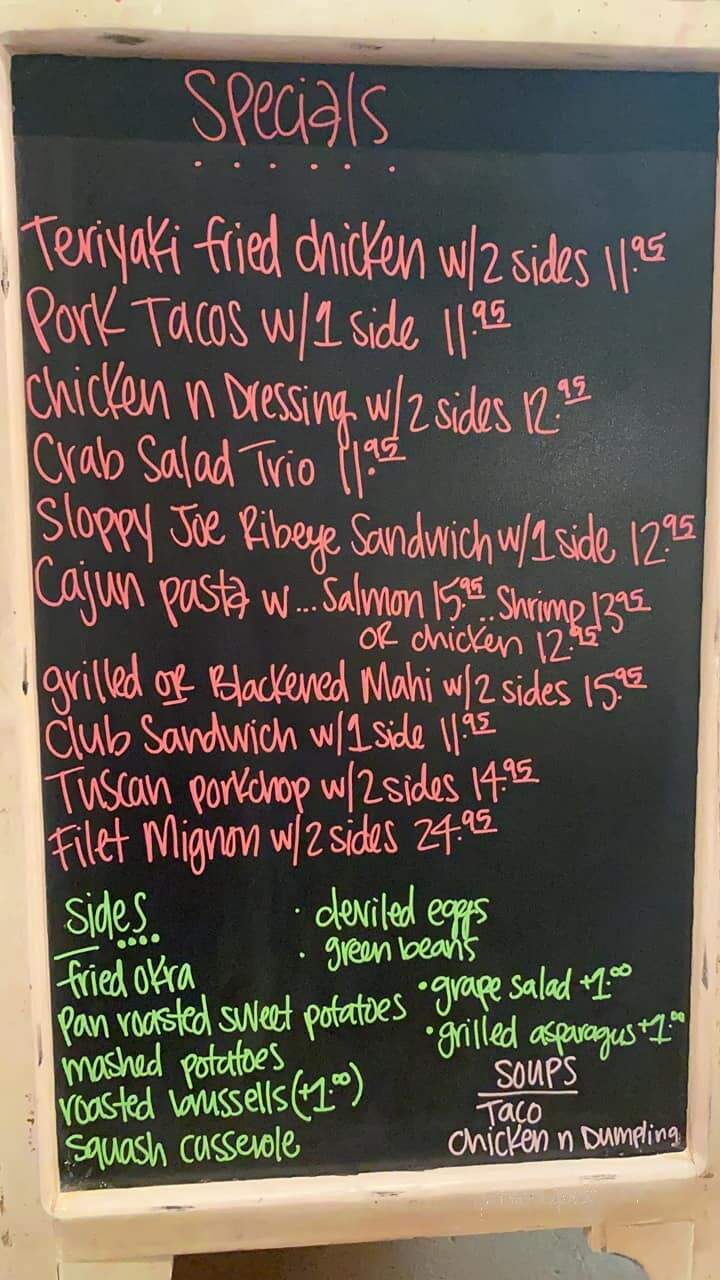 Specials
Teriyaki fried chicken w/2 sides 11.95
Pork Tacos w/1 side 11.95
Chicken n Dressing w/2 sides 12.95
Crab Salad Trio 11.95
Sloppy Joe Ribeye Sandwich w/1 side 12.95
Cajun pasta w... Salmon 15.95... Shrimp 13.95
OR chicken 12.95
grilled OR Blackened Mahi w/2 sides 15.95
Club Sandwich w/1 side 11.95
Tuscan porkchop w/2 sides 14.95
Filet Mignon w/2 sides 24.95
Sides
fried okra
Pan roasted sweet potatoes
mashed potatoes
roasted brussells (+1.00)
squash casserole
· deviled eggs
· green beans
· grape salad +1.00
· grilled asparagus +1.00
SOUPS
Taco
Chicken n Dumpling